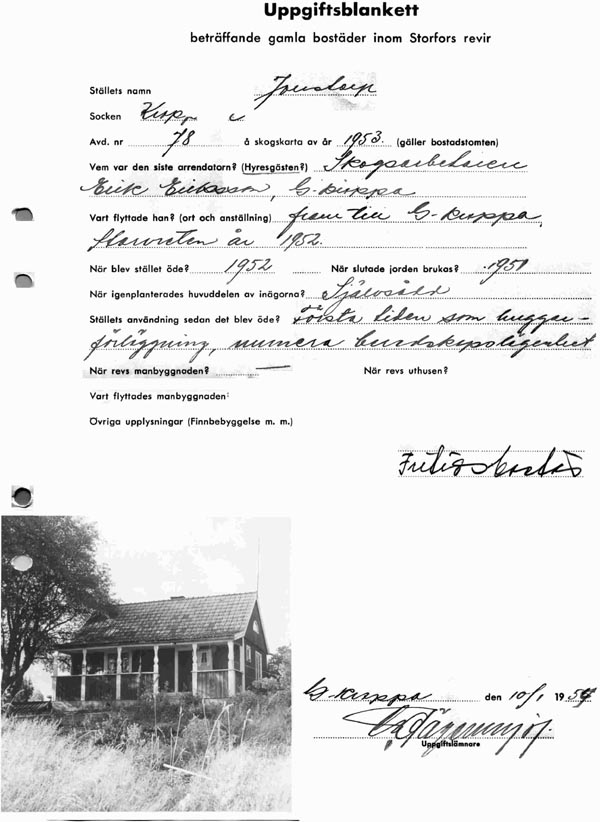 Uppgiftsblankett
beträffande gamla bostäder inom Storfors revir
Ställets namn
Socken
Avd. nr 78 å skogskarta av år 1953. (gäller bostadstomten)
Vem var den siste arrendatorn? (Hyresgästen?) Skogsarbetaren
Erik Eriksson, G-kroppa
Vart flyttade han? (ort och anställning) fram till G-kroppa,
år 1952.
När blev stället öde? 1952 När slutade jorden brukas? 1950
När igenplanterades huvuddelen av inägorna? Självsådd
Ställets användning sedan det blev öde? Första tiden som huggar-
förläggning, numera
När revs manbyggnaden? — När revs uthusen?
Vart flyttades manbyggnaden:
Övriga upplysningar (Finnbebyggelse m. m.)
G-kroppa den 10/1 1954
Uppgiftslämnare